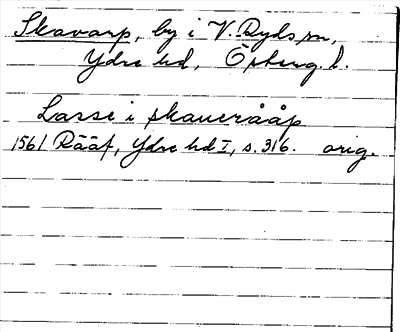 Skavarp, by i V. Ryds sn,
Ydre hd, Österg. l.
Lasse i skauerååp
1561 Rääf, Ydre hd I, s. 316. orig.